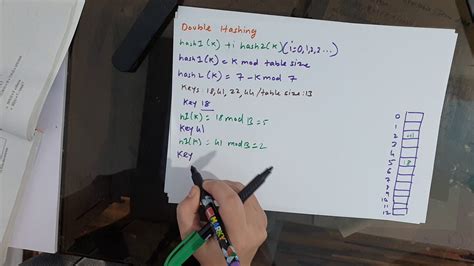 Double Hashing
hash1(K) + i hash2(K) (i=0,1,2,2...)
hash1(K) = K mod table size
hash2(K) = 7 - K mod 7
Keys: 18,41,22,44 / table size: 13
Key 18
h1(K) = 18 mod 13 = 5
Key 41
h1(K) = 41 mod 13 = 2
Key
0
1
2 41
3
4
5 18
6
7
8
9
10
11
12